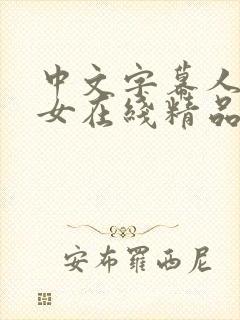 中文字幕人
女在线精品
安布罗西尼